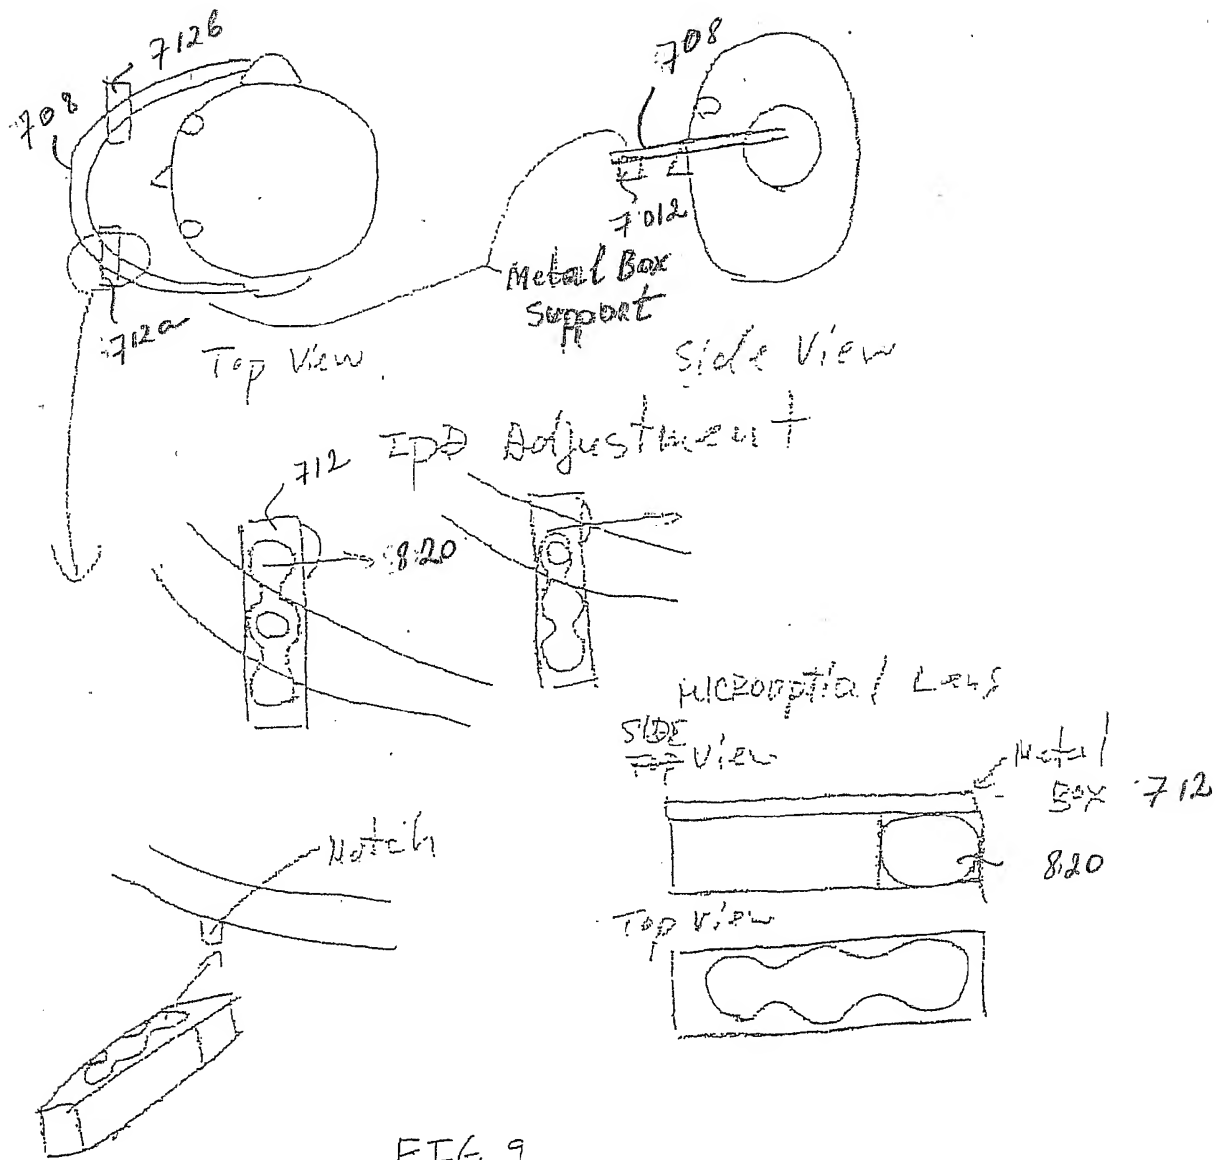 712b
708
708
7012
Metal Box
Support
712a
Top View
Side View
IPD Adjustment
712
820
Microoptial Lens
SIDE
View
Metal
Box 712
820
Notch
Top View
FIG. 9